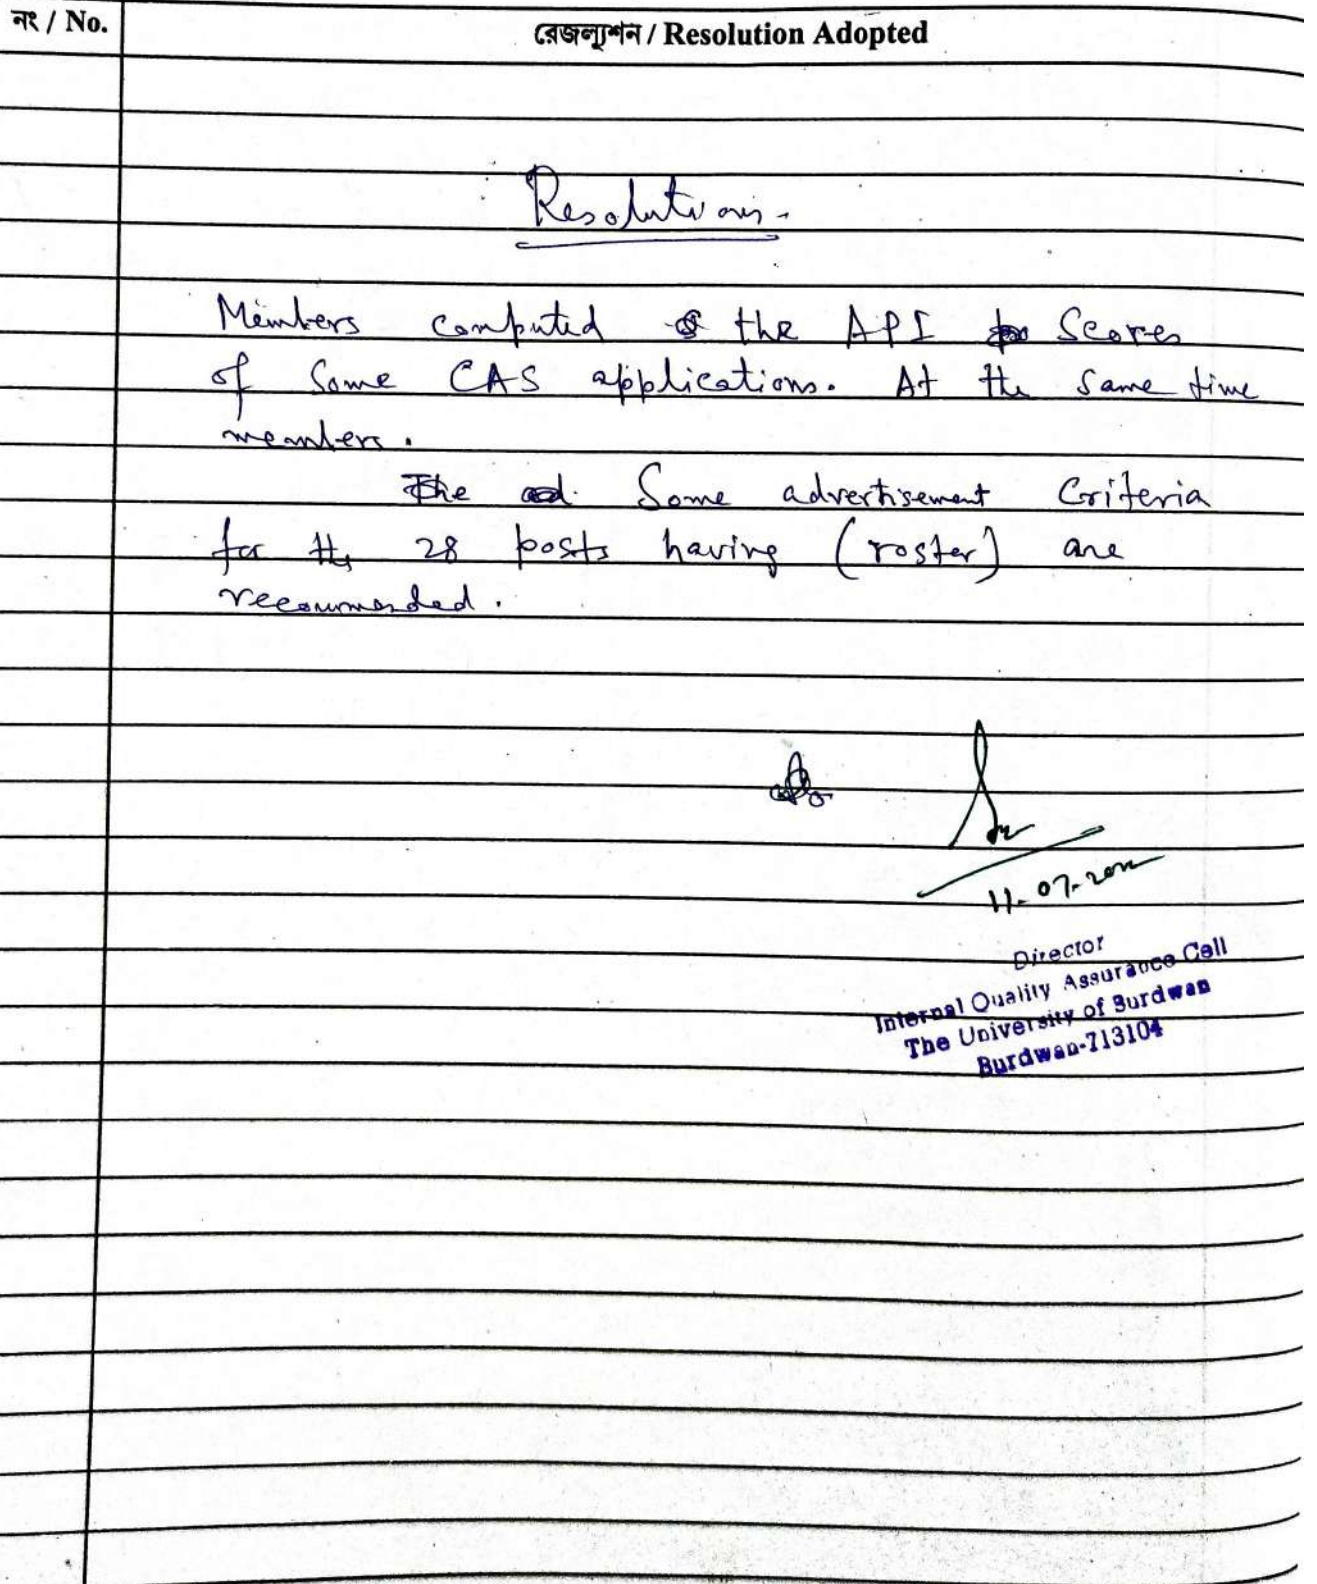 নং / No.
রেজল্যুশন / Resolution Adopted
Resolutions.
Members computed the API Scores
of Some CAS applications. At the same time
members.
The Some advertisement Criteria
for the 28 posts having (roster) are
recommended.
11-07-202
Director
Internal Quality Assurance Cell
The University of Burdwan
Burdwan-713104